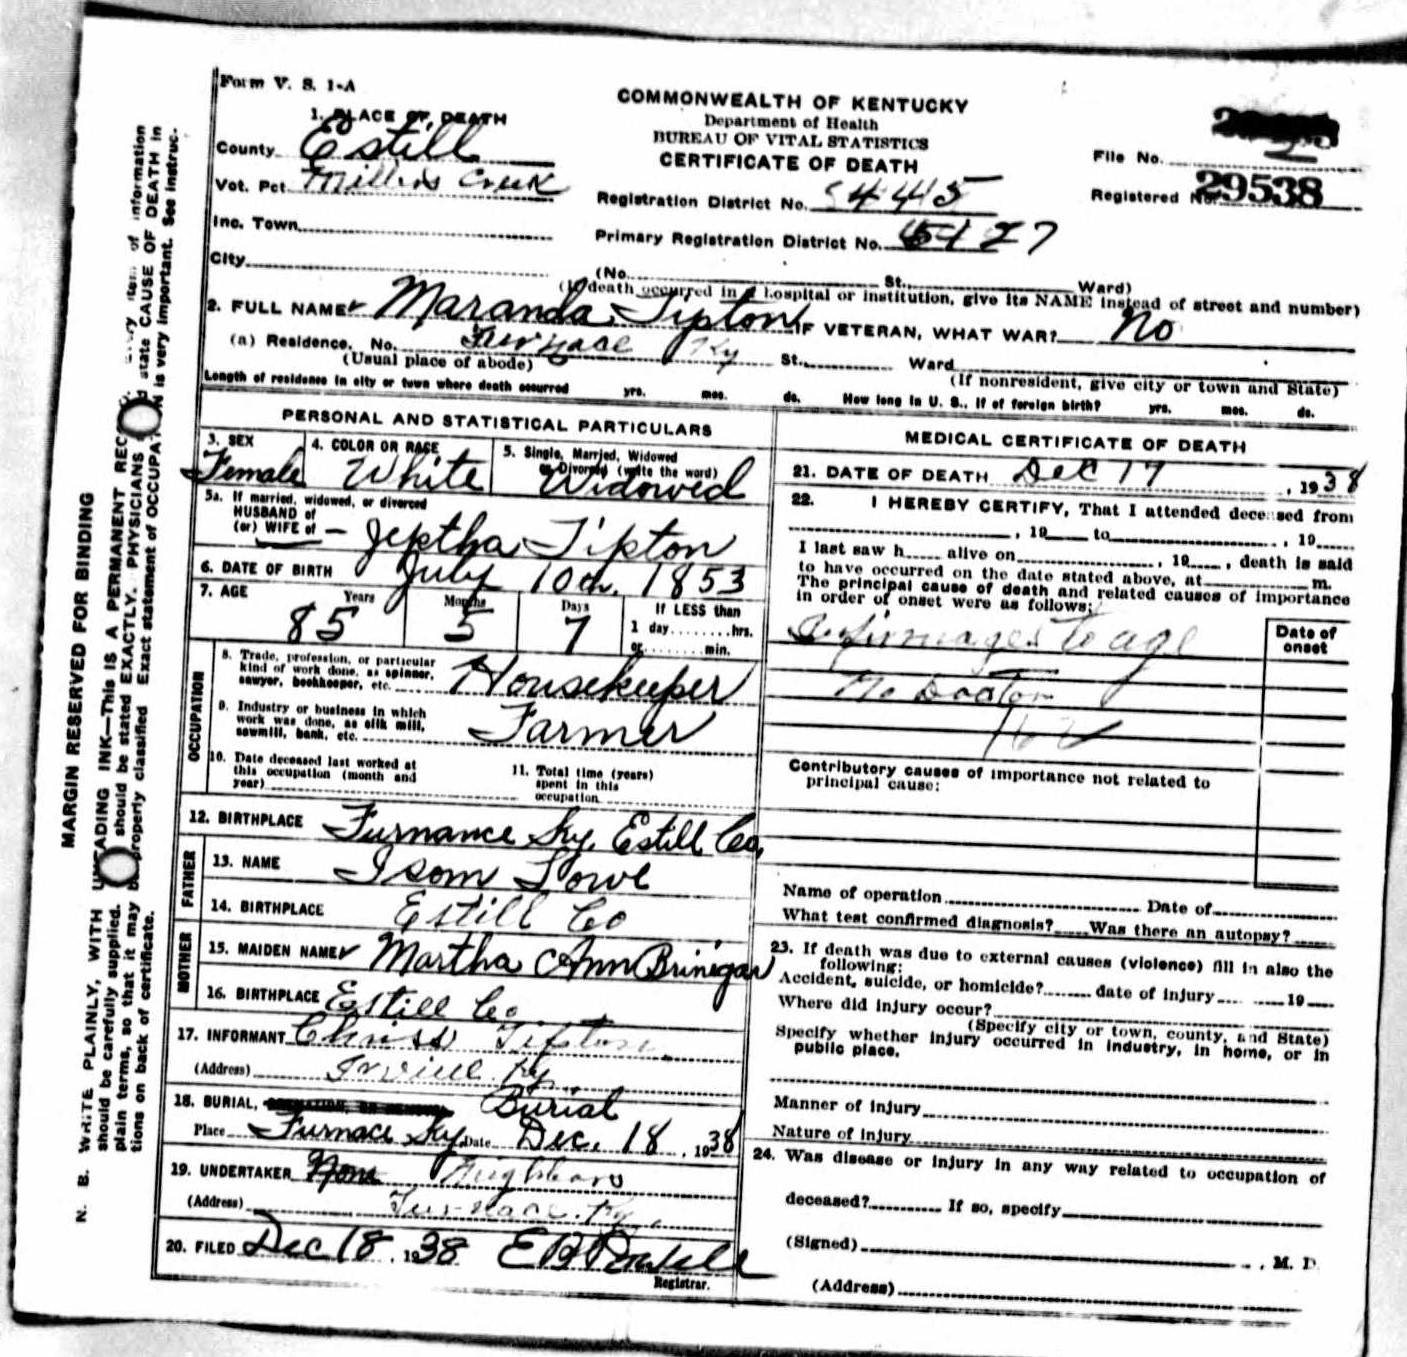 Form V. S. 1-A
COMMONWEALTH OF KENTUCKY
Department of Health
BUREAU OF VITAL STATISTICS
CERTIFICATE OF DEATH
File No.
Registered No. 29538
1. PLACE OF DEATH
County Estill
Vot. Pct Millers Creek
Inc. Town
City
Registration District No. 445
Primary Registration District No. 5127
(No. St. Ward)
(If death occurred in a hospital or institution, give its NAME instead of street and number)
2. FULL NAME Maranda Tipton IF VETERAN, WHAT WAR? No
(a) Residence, No. Furnace Ky St. Ward
(Usual place of abode) (If nonresident, give city or town and State)
Length of residence in city or town where death occurred yrs. mos. ds. How long in U. S., if of foreign birth? yrs. mos. ds.
PERSONAL AND STATISTICAL PARTICULARS
3. SEX 4. COLOR OR RACE 5. Single, Married, Widowed
or Divorced (write the word)
Female White Widowed
5a. If married, widowed, or divorced
HUSBAND of
(or) WIFE of – Jeptha Tipton
6. DATE OF BIRTH July 10th, 1853
7. AGE Years Months Days If LESS than
85 5 7 1 day........hrs.
or........min.
OCCUPATION
8. Trade, profession, or particular
kind of work done, as spinner,
sawyer, bookkeeper, etc. Housekeeper
9. Industry or business in which
work was done, as silk mill,
sawmill, bank, etc. Farmer
10. Date deceased last worked at
this occupation (month and
year)
11. Total time (years)
spent in this
occupation
12. BIRTHPLACE Furnance Ky. Estill Co.
FATHER
13. NAME Isom Lowe
14. BIRTHPLACE Estill Co
MOTHER
15. MAIDEN NAME Martha Ann Brinegar
16. BIRTHPLACE Estill Co
17. INFORMANT Chriss Tipton
(Address) Irvine Ky
18. BURIAL, CREMATION, OR REMOVAL Burial
Place Furnace Ky. Date Dec. 18, 1938
19. UNDERTAKER None Neighbors
(Address) Furnace Ky.
20. FILED Dec 18, 1938 E B
Registrar.
MEDICAL CERTIFICATE OF DEATH
21. DATE OF DEATH Dec 17, 1938
22. I HEREBY CERTIFY, That I attended deceased from
, 19 to , 19
I last saw h alive on , 19 , death is said
to have occurred on the date stated above, at m.
The principal cause of death and related causes of importance
in order of onset were as follows:
Date of
onset
to age
No Doctor
162
Contributory causes of importance not related to
principal cause:
Name of operation Date of
What test confirmed diagnosis? Was there an autopsy?
23. If death was due to external causes (violence) fill in also the
following:
Accident, suicide, or homicide? date of injury 19
Where did injury occur?
(Specify city or town, county, and State)
Specify whether injury occurred in industry, in home, or in
public place.
Manner of injury
Nature of injury
24. Was disease or injury in any way related to occupation of
deceased? If so, specify
(Signed) , M. D.
(Address)
MARGIN RESERVED FOR BINDING
N. B. WRITE PLAINLY, WITH UNFADING INK—This is A PERMANENT RECORD. Every item of information
should be carefully supplied. AGE should be stated EXACTLY. PHYSICIANS should state CAUSE OF DEATH in
plain terms, so that it may be properly classified. Exact statement of OCCUPATION is very important. See instruc-
tions on back of certificate.